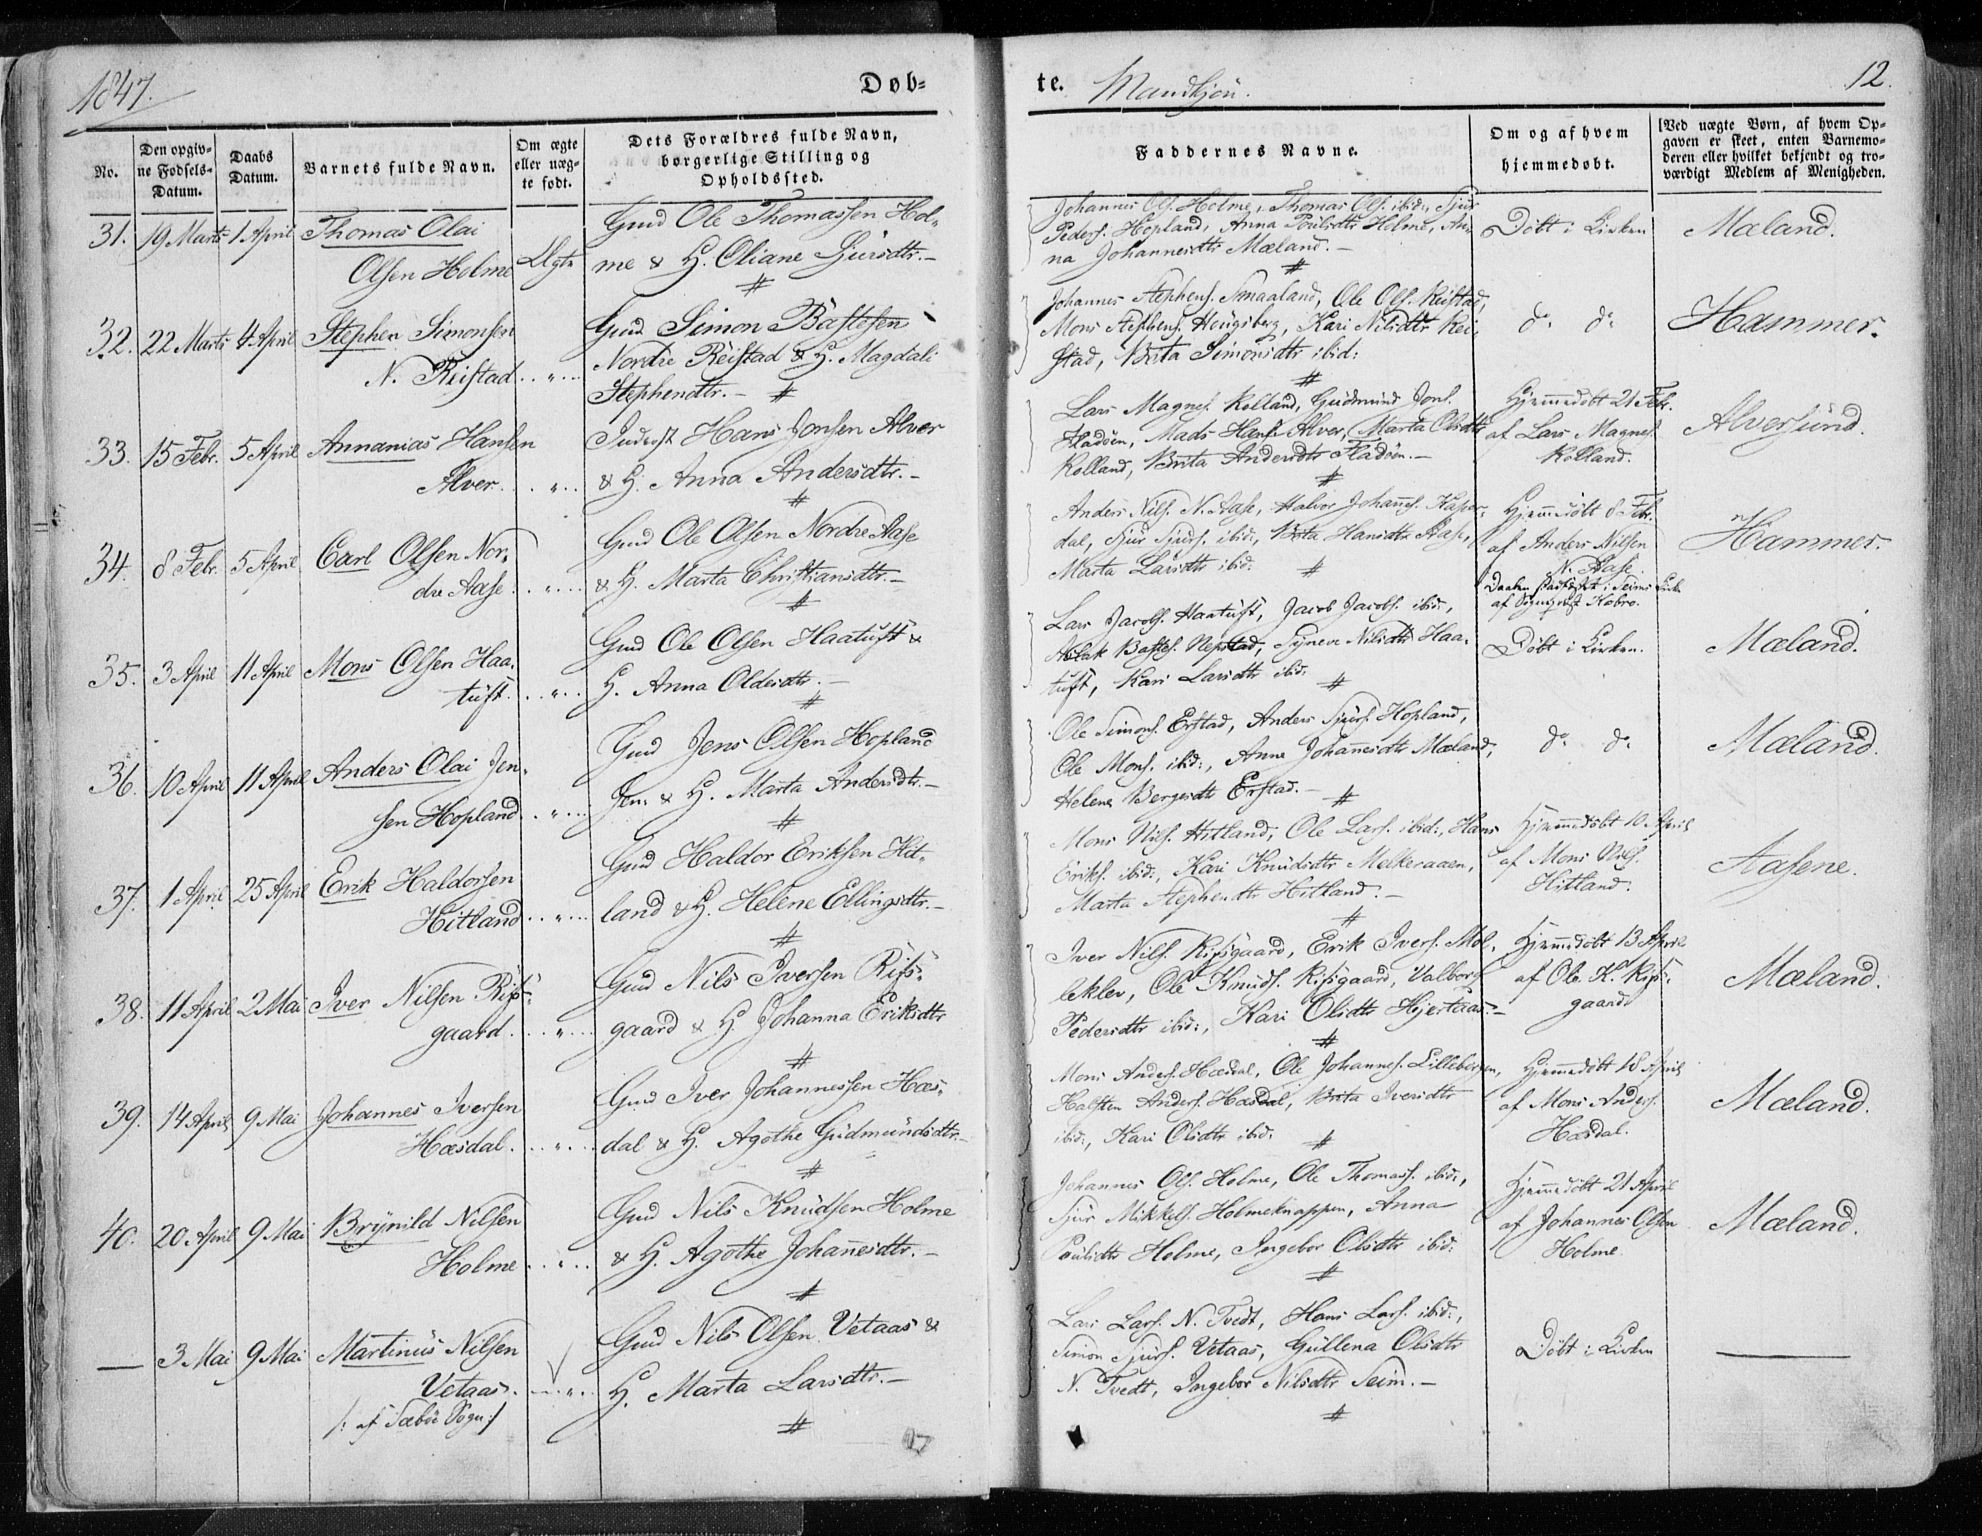 1847.
Døb=
te. Mandkjøn.
12.
No.
Den opgiv=
ne Fødsels=
Datum.
Daabs
Datum.
Barnets fulde Navn.
Om ægte
eller uæg=
te født.
Dets Forældres fulde Navn,
borgerlige Stilling og
Opholdssted.
Faddernes Navne.
Om og af hvem
hjemmedøbt.
[Ved uægte Børn, af hvem Op=
gaven er skeet, enten Barnemo=
deren eller hvilket bekjendt og tro=
værdigt Medlem af Menigheden.
31. 19 Marts 1 April Thomas Olai
Olsen Holme Ægte
Gmd Ole Thomassen Hol=
me & H. Oliane Sjursdtr. —
Johannes Ols. Holme, Thomas Ols. ibid:, Sjur
Peders. Hopland, Anna Poulsdtr Holme, An=
na Johannesdtr Mæland. —
Døbt i Kirken
Mæland.
32. 22 Marts 4 April Stephen Simonsen
N. Reistad
Gmd Simon Bastesen
Nordre Reistad & H. Magdali
Stephensdtr. —
Johannes Stephens. Smaaland, Ole Ols. Reistad,
Mons Stephens. Hougsberg, Kari Nilsdtr Rei=
stad, Brita Simonsdtr ibid:
do do
Hammer.
33. 15 Febr. 5 April Annanias Hansen
Alver.
Inderst Hans Jonsen Alver
& H. Anna Andersdtr. —
Lars Magnes. Kolland, Gudmund Jons.
Fladøen, Mads Hans. Alver, Marta Olsdtr
Kolland, Brita Andersdtr Fladøen. —
Hjemmedøbt 21 Febr.
af Lars Magnes.
Kolland.
Alversund.
34. 8 Febr. 5 April Carl Olsen Nor=
dre Aase
Gmd Ole Olsen Nordre Aase
& H. Marta Christiansdtr. —
Anders Nils. N. Aase, Halvor Johans.
dal, Sjur Sjurs. ibid:, Brita Hansdtr Aase,
Marta Larsdtr ibid:
Hjemmedøbt 8 Febr.
af Anders Nilsen
N. Aase.
Daaben stadfæstet i Seims Kirke
af Sognepræst Kobro.
Hammer.
35. 3 April 11 April Mons Olsen Haa=
tuft.
Gmd Ole Olsen Haatuft &
H. Anna Oldersdtr. —
Lars Jacobs. Haatuft, Jacob Jacobs. ibid:,
Aslak Bastes. Nepstad, Syneve Nilsdtr Haa=
tuft, Kari Larsdtr ibid:
Døbt i Kirken.
Mæland.
36. 10 April 11 April Anders Olai Jen=
sen Hopland
Gmd Jens Olsen Hopland
& H. Marta Andersdtr. —
Ole Simons. Erstad, Anders Sjurs. Hopland,
Ole Mons. ibid:, Anne Johannesdtr Mæland,
Helena Bergesdtr Erstad. —
do do
Mæland.
37. 1 April 25 April Erik Haldorsen
Hitland
Gmd Haldor Eriksen Hit=
land & H. Helene Ellingsdtr. —
Mons Nils. Hitland, Ole Lars. ibid:, Hans
Eriks. ibid:, Kari Knudsdtr Melkeraaen,
Marta Stephensdtr Hitland. —
Hjemmedøbt 10 April
af Mons Nils.
Hitland.
Aasene.
38. 11 April 2 Mai Iver Nilsen Riis=
gaard.
Gmd Nils Iversen Riis=
gaard & H. Johanna Eriksdtr
Iver Nils. Riisgaard, Erik Ivers. Mol=
leklev, Ole Knuds. Riisgaard, Valborg
Pedersdtr ibid:, Kari Olsdtr Hjertaas. —
Hjemmedøbt 13 April
af Ole K. Riis=
gaard
Mæland.
39. 14 April 9 Mai Johannes Iversen
Hæsdal.
Gmd Iver Johannessen Hæs=
dal & H. Agothe Gudmundsdtr. —
Mons Anders. Hæsdal, Ole Johannes. Lillebergen,
Halsten Anders. Hæsdal, Brita Iversdtr
ibid:, Kari Olsdtr ibid:
Hjemmedøbt 18 April
af Mons Anders.
Hæsdal.
Mæland.
40. 20 April 9 Mai Brynild Nilsen
Holme
Gmd Nils Knudsen Holme
& H. Agothe Johannesdtr. —
Johannes Ols. Holme, Ole Thomass. ibid:,
Sjur Mikkels. Holmeknappen, Anna
Poulsdtr Holme, Ingebor Olsdtr ibid:
Hjemmedøbt 21 April
af Johannes Olsen
Holme.
Mæland.
— 3 Mai 9 Mai Martinus Nilsen
Vetaas.
/: af Sæbø Sogn :/
Gmd Nils Olsen Vetaas &
H. Marta Larsdtr. —
Lars Lars. N. Tvedt, Hans Lars. ibid:,
Simon Sjurs. Vetaas, Gullena Olsdtr
N. Tvedt, Ingebor Nilsdtr Seim. —
Døbt i Kirken
—